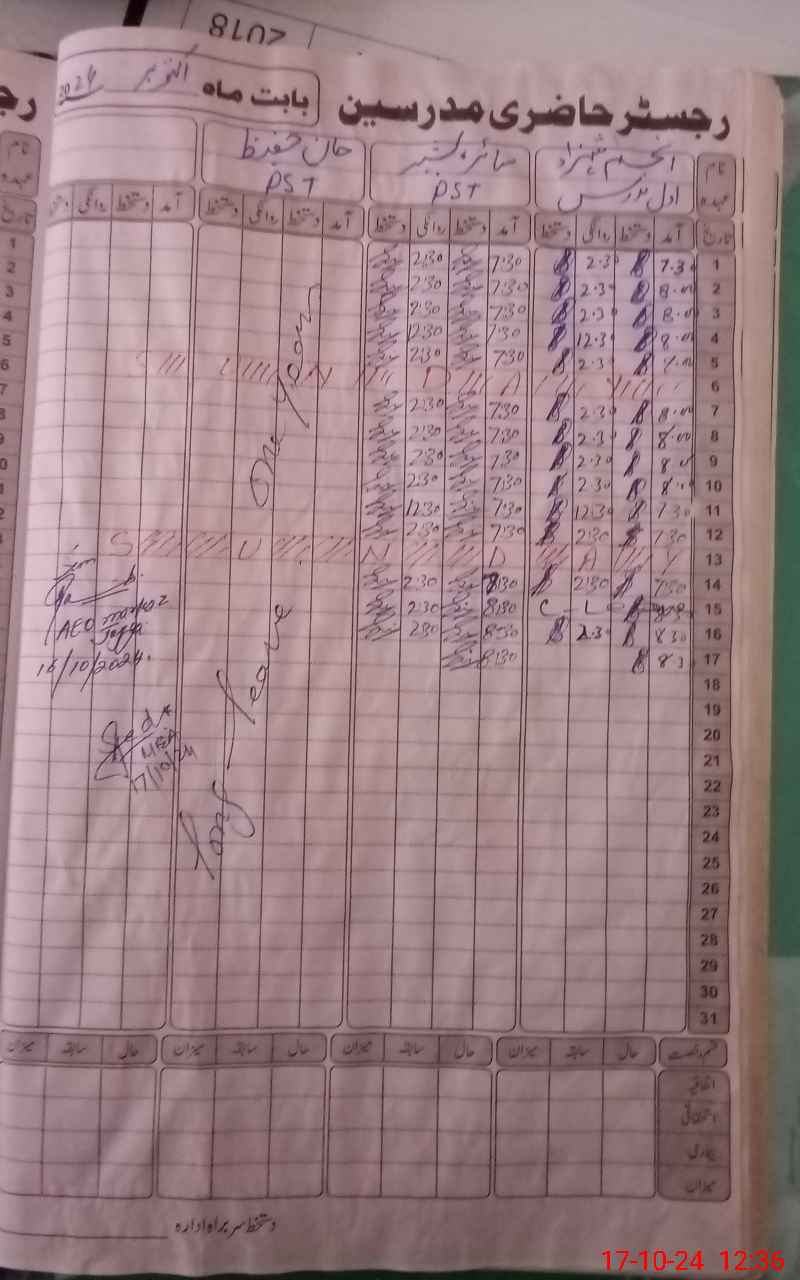 2018
رجسٹر حاضری مدرسین بابت ماہ اکتوبر 2024
نام انجم شہزاد سائرہ بشیر
عہدہ PST PST
تاریخ آمد دستخط روانگی دستخط آمد دستخط روانگی دستخط آمد دستخط روانگی دستخط آمد دستخط روانگی دستخط
1 7.30 2.30 7:30 2:30
2 8.00 2.30 7:30 2:30
3 8.00 2.30 7:30 2:30
4 8.00 12.30 7:30 12:30
5 2.30 7:30 2:30
6 SUNDAY
7 8.00 2.30 7:30 2:30
8 8.00 2.30 7:30 2:30
9 8.00 2.30 7:30 2:30
10 8.00 2.30 7:30 2:30
11 7.30 12.30 7:30 12:30
12 7.30 2:30 7:30 2:30
13 SUNDAY
14 7:30 2:30 8:30 2:30
15 C - L 8:30 2:30
16 8:30 2.30 8:30 2:30
17 8.3 8:30
18
19
20
21
22
23
24
25
26
27
28
29
30
31
Long Leave One Year
AEO
16/10/2024.
MEA
17/10/24
حال سابقہ میزان حال سابقہ میزان حال سابقہ میزان حال سابقہ میزان
اتفاقیہ
استحقاقی
بیماری
میزان
دستخط سربراہ ادارہ
17-10-24 12:36